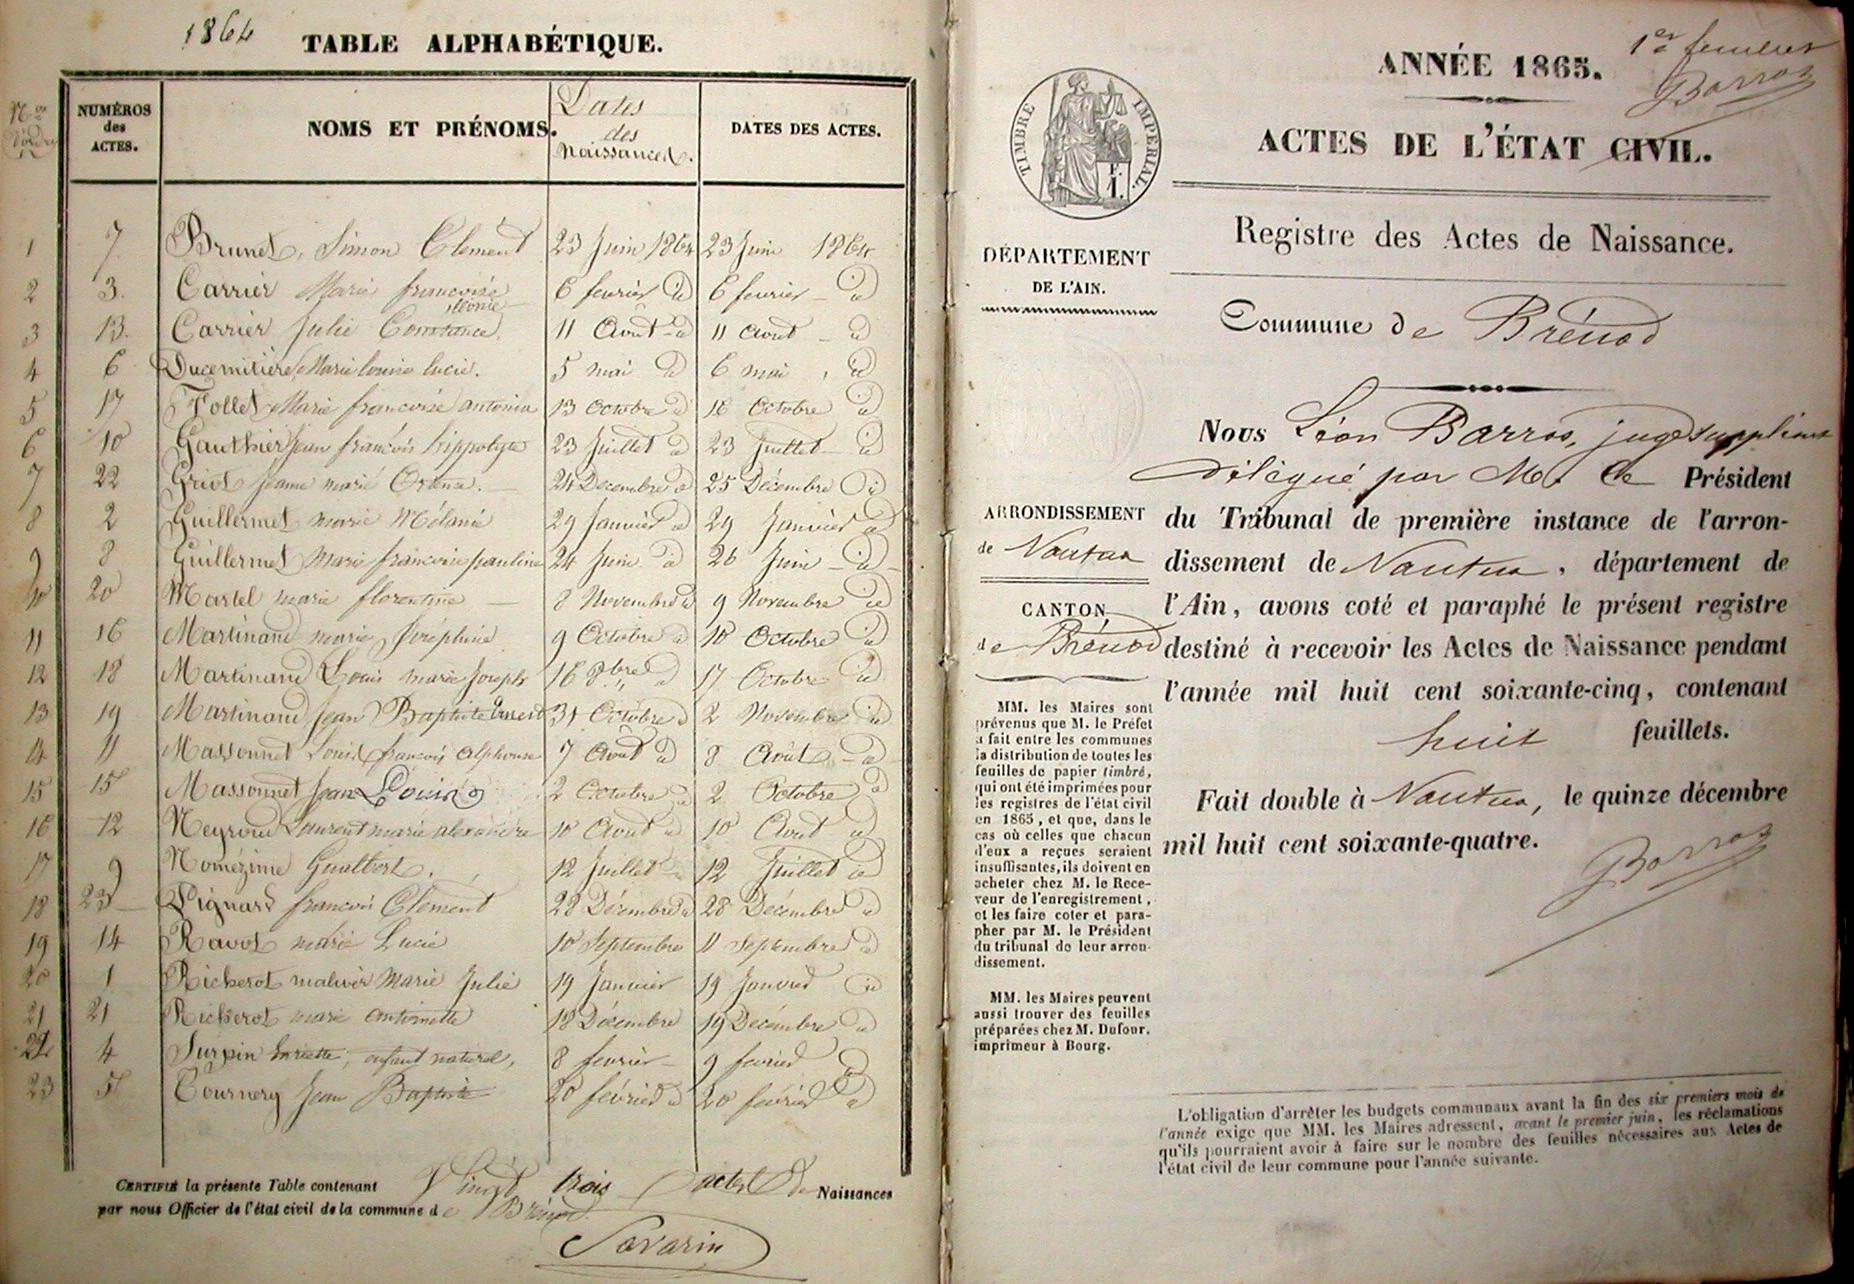 1864 TABLE ALPHABÉTIQUE.
Nos d'ordre
NUMÉROS des ACTES. NOMS ET PRÉNOMS. Dates des Naissances. DATES DES ACTES.
1 7 Brunet, Simon Clément 23 Juin 1864 23 Juin 1864
2 3 Carrier Marie françoise léonie 6 fevrier d 6 fevrier d
3 13 Carrier Julie Constance. 11 Aout d 11 aout d
4 6 Ducimitière Marie louise lucie. 5 mai d 6 mai d
5 17 Follet Marie françoise antonia 13 Octobre d 16 Octobre d
6 10 Gauthier Jean françois hippolyte 23 Juillet d 23 Juillet d
7 22 Griot Jeanne marie Ortense. 24 Decembre d 25 Décembre d
8 2 Guillermet marie Mélanie 29 Janvier d 29 Janvier d
9 8 Guillermet Marie françoise pauline 24 Juin d 26 Juin d
10 20 Martel marie florentine 8 Novembre d 9 Novembre d
11 16 Martinand marie Joséphine 9 Octobre d 10 Octobre d
12 18 Martinand Louis marie Joseph 16 8bre d 17 Octobre d
13 19 Martinand Jean Baptiste Ernest 31 Octobre d 2 Novembre d
14 11 Massonnet Louis françois alphonse 7 Aout d 8 Août d
15 15 Massonnet Jean Louis 2 Octobre d 2 Octobre d
16 12 Neyroud Laurent marie alexandre 10 Aout d 10 Aout d
17 9 Nomézime Gualbert. 12 Juillet d 12 Juillet d
18 23 Pignard françois Clément 28 Décembre d 28 Décembre d
19 14 Ravot marie Lucie 10 Septembre 11 Septembre d
20 1 Richerot Marie Julie 19 Janvier 19 Janvier d
21 21 Richerot marie antoinette 18 Décembre 19 Décembre d
22 4 Surpin enfant naturel, 8 fevrier 9 fevrier d
23 5 Tournery Jean Baptiste 20 février d 20 février d
CERTIFIÉ la présente Table contenant Vingt trois actes de Naissances
par nous Officier de l'état civil de la commune de Brénod.
Savarin
1er feuillet
Barros
ANNÉE 1865.
TIMBRE IMPÉRIAL.
F. 1.
ACTES DE L'ÉTAT CIVIL.
Registre des Actes de Naissance.
DÉPARTEMENT
DE L'AIN.
Commune de Brénod
ARRONDISSEMENT
de Nantua
CANTON
de Brénod
Nous Léon Barros, juge suppléant
délégué par M. le Président
du Tribunal de première instance de l'arron-
dissement de Nantua, département de
l'Ain, avons coté et paraphé le présent registre
destiné à recevoir les Actes de Naissance pendant
l'année mil huit cent soixante-cinq, contenant
huit feuillets.
Fait double à Nantua, le quinze décembre
mil huit cent soixante-quatre.
Barros
MM. les Maires sont
prévenus que M. le Préfet
a fait entre les communes
la distribution de toutes les
feuilles de papier timbré,
qui ont été imprimées pour
les registres de l'état civil
en 1865, et que, dans le
cas où celles que chacun
d'eux a reçues seraient
insuffisantes, ils doivent en
acheter chez M. le Rece-
veur de l'enregistrement,
et les faire coter et para-
pher par M. le Président
du tribunal de leur arron-
dissement.
MM. les Maires peuvent
aussi trouver des feuilles
préparées chez M. Dufour,
imprimeur à Bourg.
L'obligation d'arrêter les budgets communaux avant la fin des six premiers mois de
l'année exige que MM. les Maires adressent, avant le premier juin, les réclamations
qu'ils pourraient avoir à faire sur le nombre des feuilles nécessaires aux Actes de
l'état civil de leur commune pour l'année suivante.